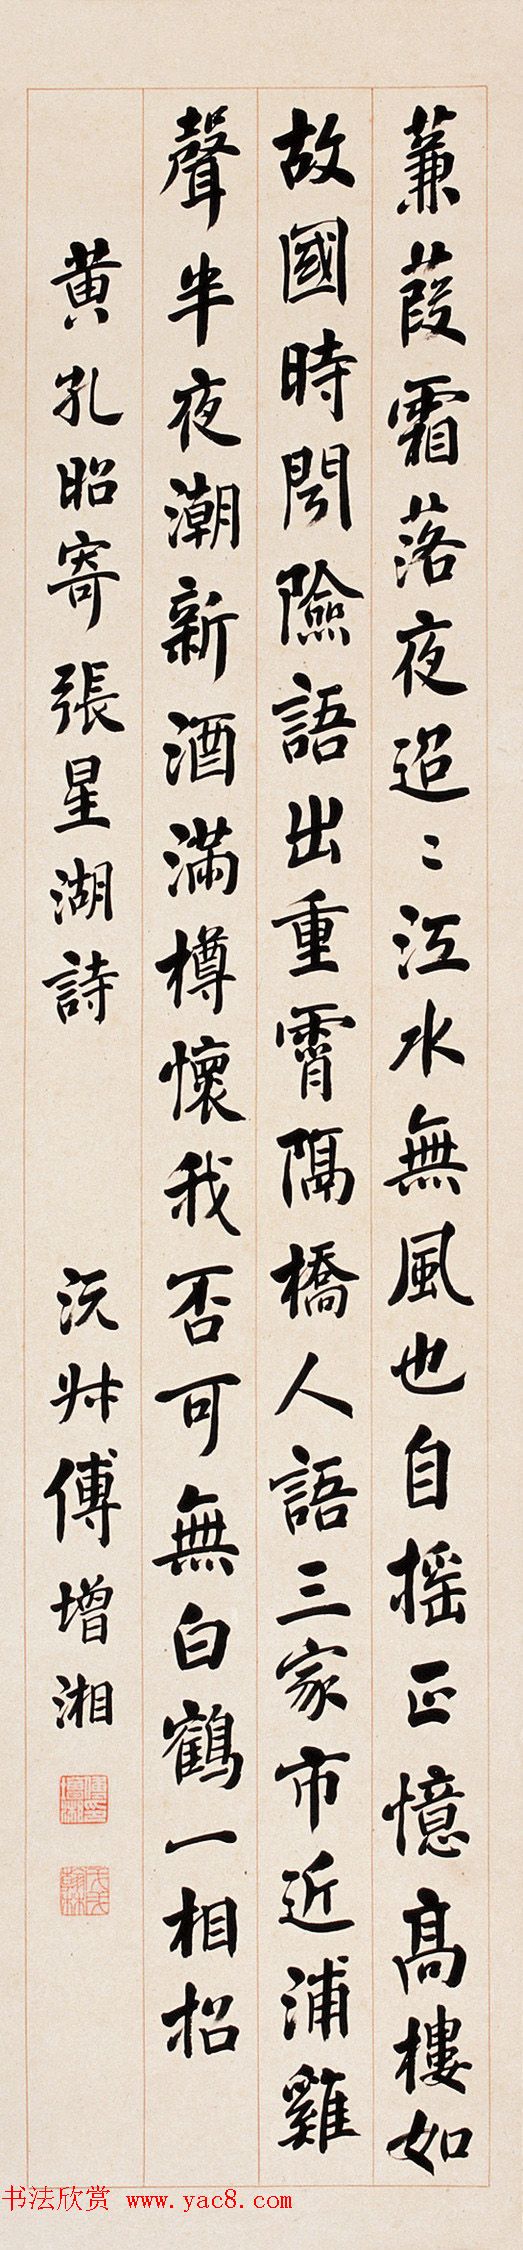 蒹葭霜落夜迢〻江水無風也自摇正憶高樓如
故國時聞險語出重霄隔橋人語三家市近浦雞
聲半夜潮新酒滿樽懷我否可無白鶴一相招
黄孔昭寄張星湖詩 沅叔傅增湘
傅印增湘
戊戌翰林
书法欣赏 www.yac8.com